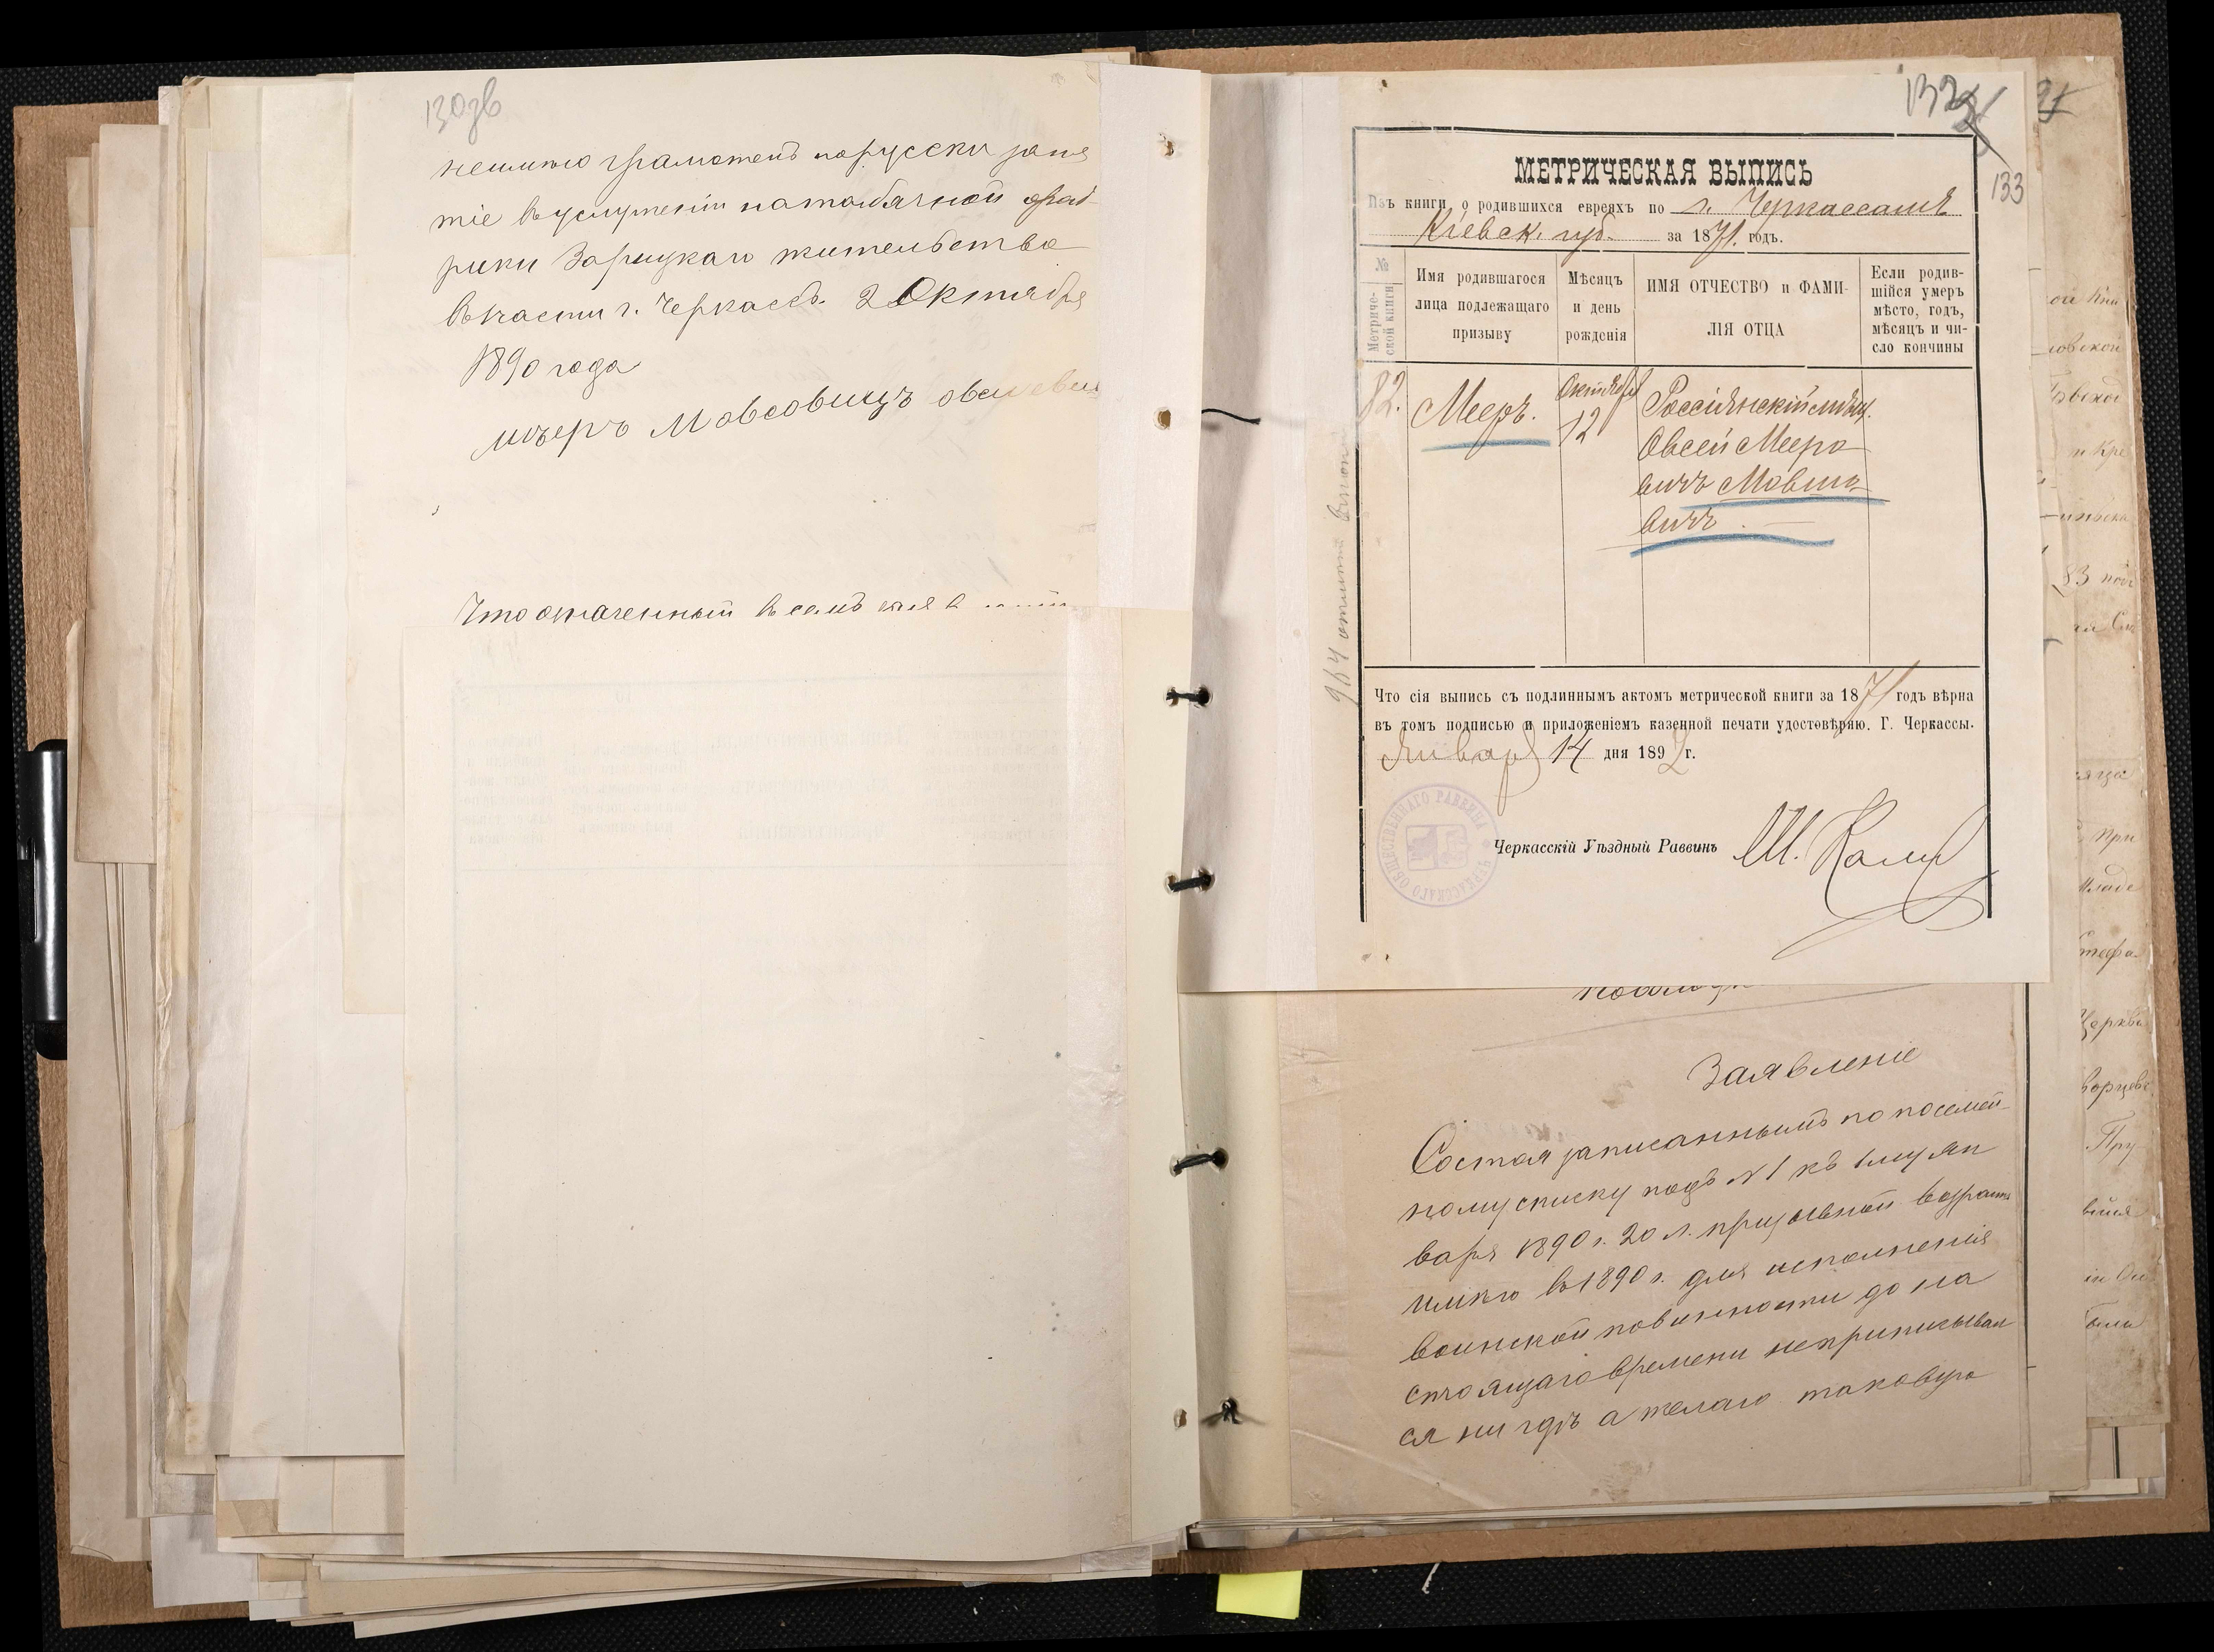 130зв
немного грамотенъ порусски заня
тіе въ услуженіи на табачной фаб
рики Зарицкаго жительство
въ части г. Черкассъ. 2 Октября
1890 года
мѣеръ Мовсовичъ овсиевич
Что означенный въ семъ
132
133
МЕТРИЧЕСКАЯ ВЫПИСЬ
Изъ книги о родившихся евреяхъ по г. Черкассамъ
Кіевск. губ. за 1871 годъ.
№ Метриче-ской книги
Имя родившагося лица подлежащаго призыву
Мѣсяцъ и день рожденія
ИМЯ ОТЧЕСТВО и ФАМИ-ЛІЯ ОТЦА
Если родив-шійся умеръ мѣсто, годъ, мѣсяцъ и чи-сло кончины
82. Мееръ. Октября 12
Россіянскій мѣщ.
Овсей Мееро
вичъ Мовшо
вичъ.
Что сія выпись съ подлиннымъ актомъ метрической книги за 1871 годъ вѣрна
въ томъ подписью и приложеніемъ казенной печати удостовѣряю. Г. Черкассы.
Января 14 дня 1892 г.
Черкасскій Уѣздный Раввинъ
ЧЕРКАССКАГО ОБЩЕСТВЕННАГО РАВВИНА
Заявленіе
Состоя записаннымъ по посемей
ному списку подъ № 1 къ 1му ян
варя 1890 г. 20 л. призывной возрастъ
имѣю въ 1890 г. для исполненія
воинской повинности до на
стоящаго времени неприписывал
ся ни гдѣ а желаю таковую